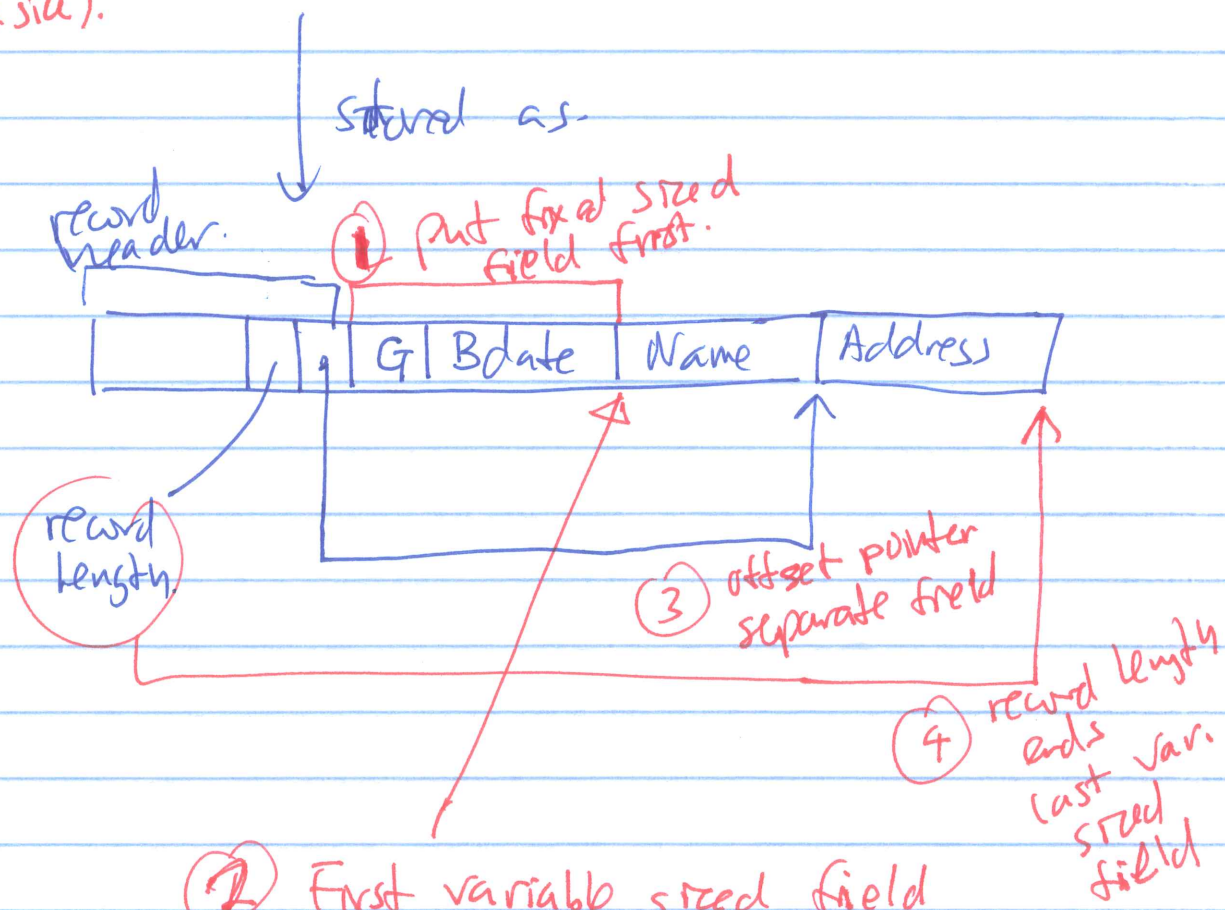 size).
stored as.
record
header.
1 put fixed sized
field first.
G Bdate Name Address
record
Length.
3 offset pointer
separate field
4 record length
ends
last var.
sized
field
2 First variable sized field